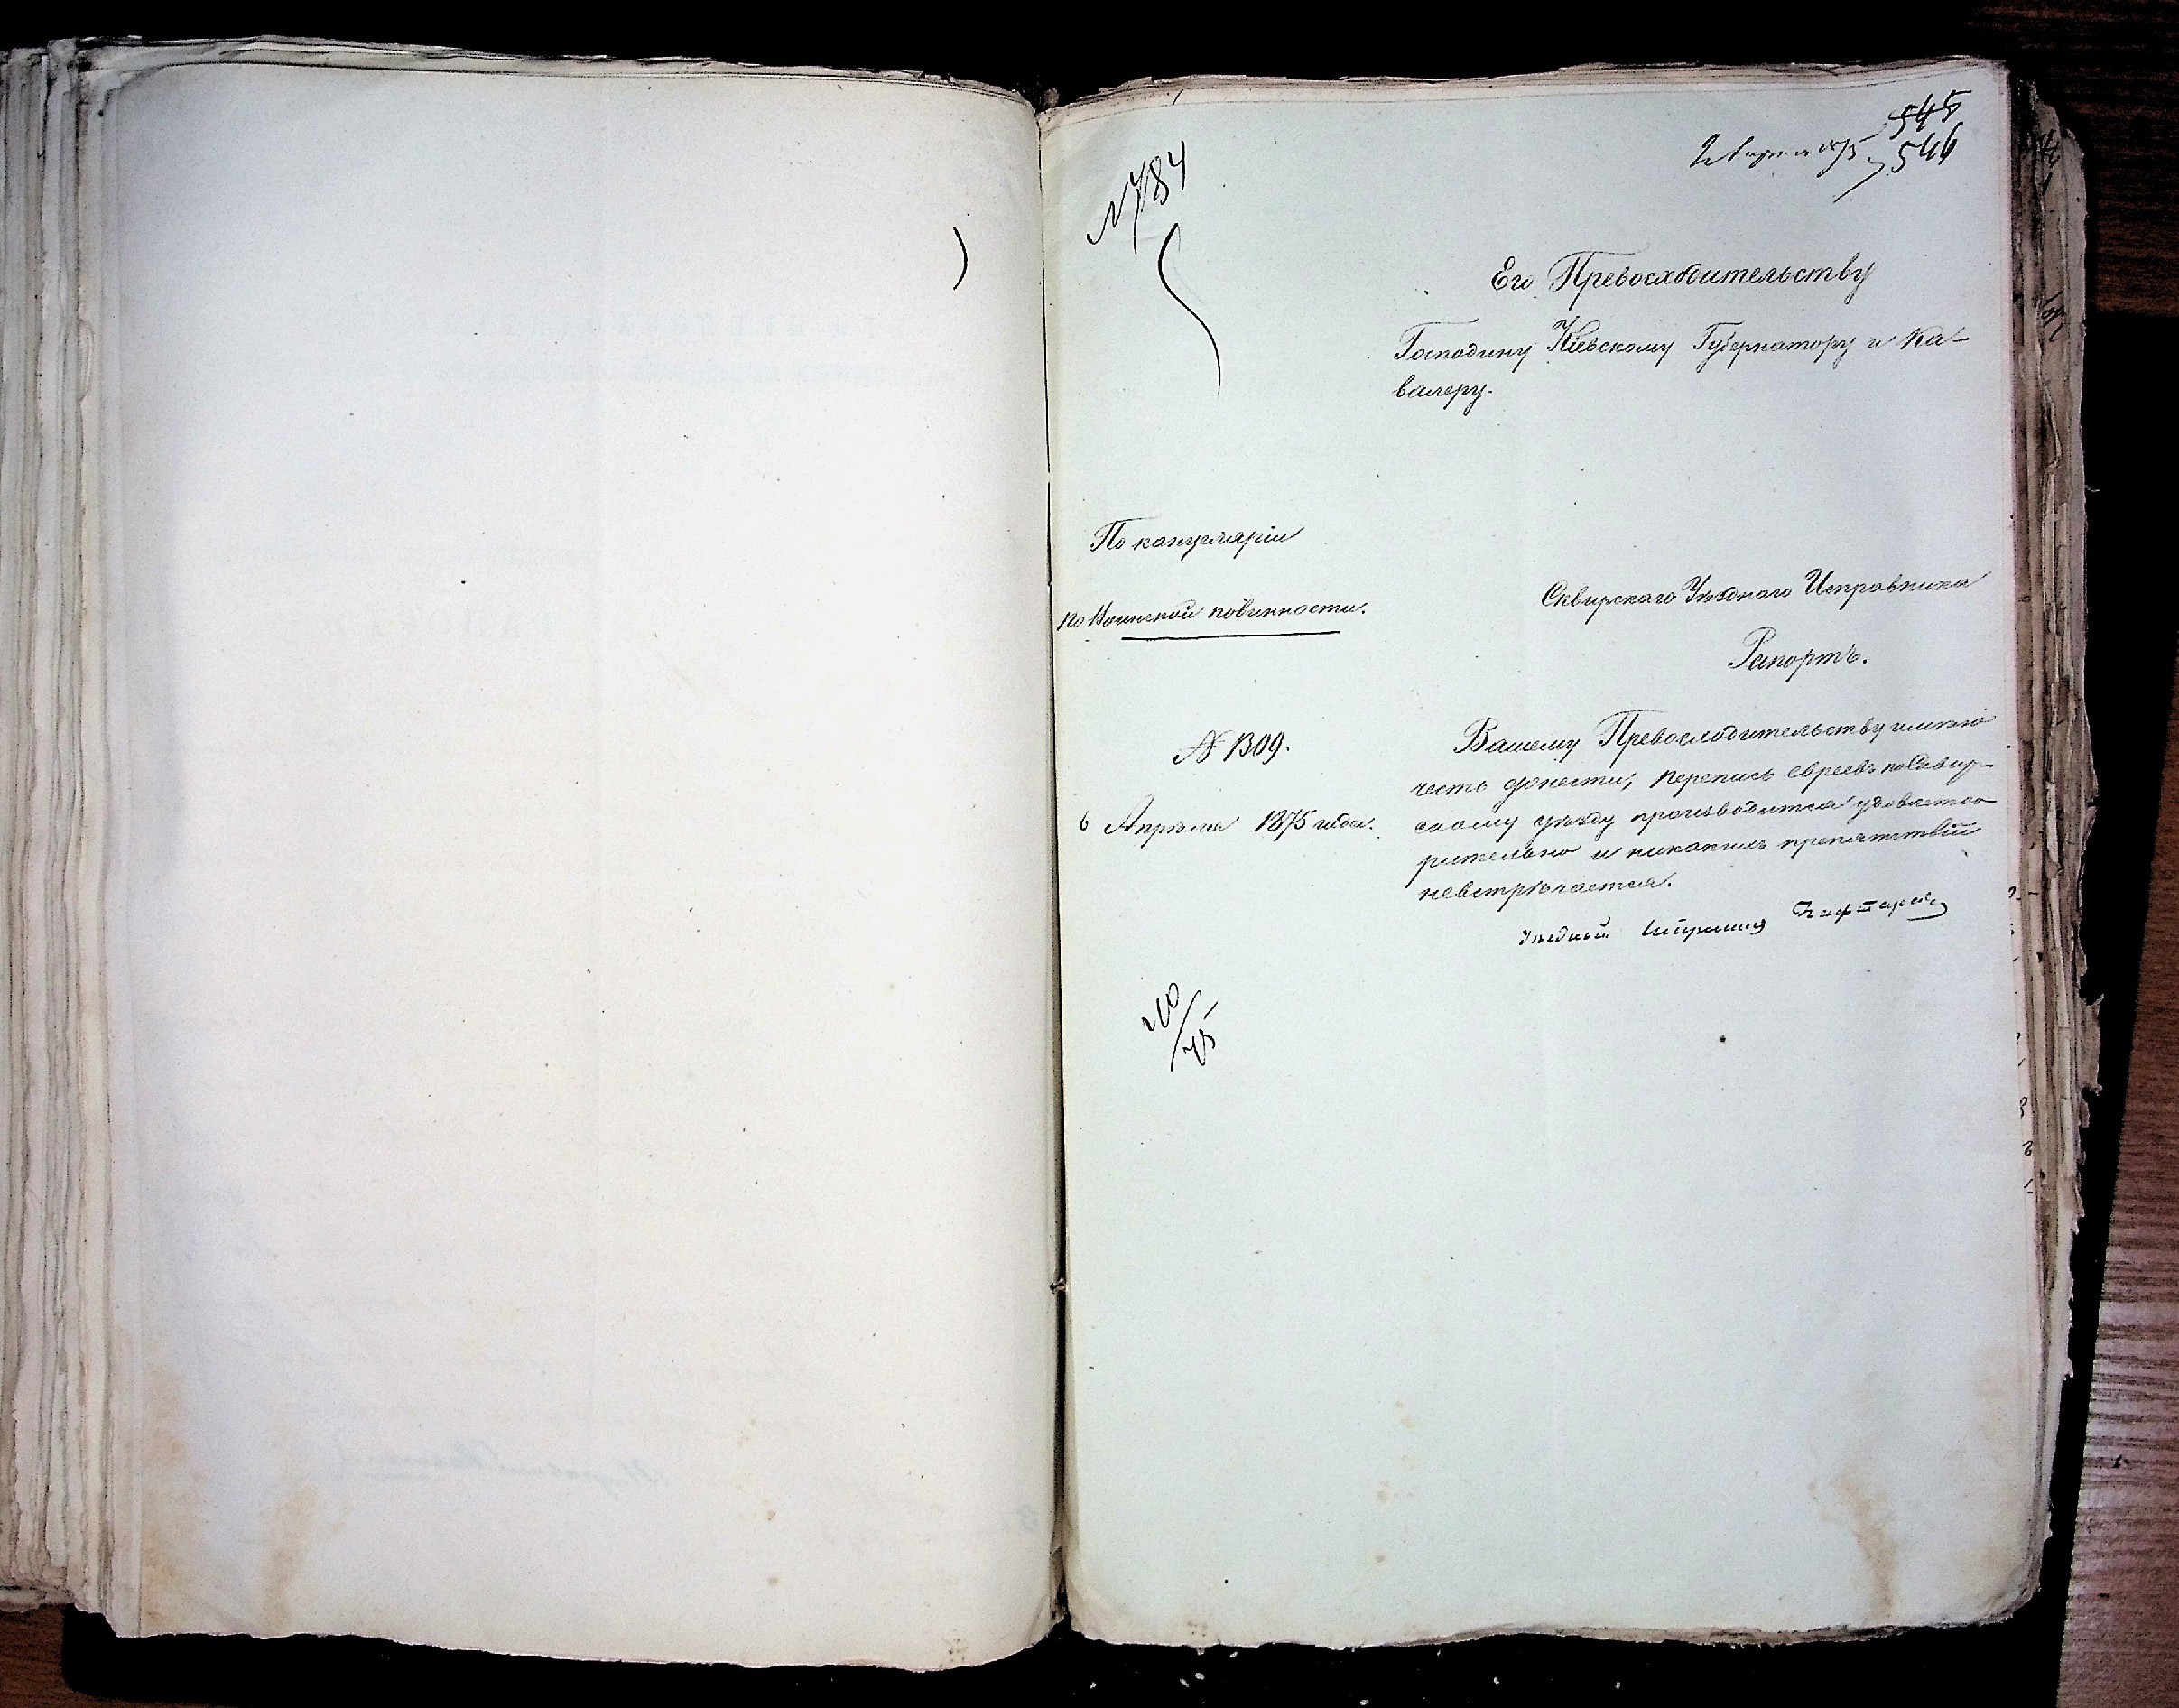 545
546
№ 784
Его Превосходительству
Господину Кіевскому Губернатору и Ка-
валеру.
По канцеляріи
по Воинской повинности.
Сквирскаго Уѣзднаго Исправника
Рапортъ.
№ 1309.
6 Апрѣля 1875 года.
Вашему Превосходительству имѣю
честь донести, перепись евреевъ по Сквир-
скому уѣзду производится удовлетво
рительно и никакихъ препятствій
невстрѣчается.
Уѣздный Исправникъ